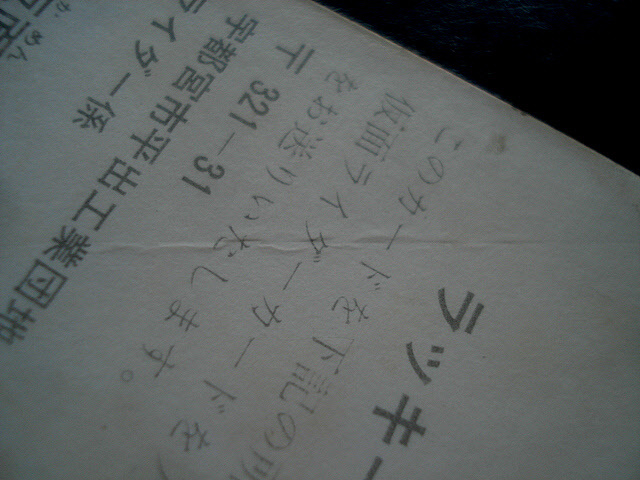 ラッキー
このカードを下記の
仮面ライダーカードを
をお送りいたします。
〒321-31
宇都宮市平出工業団地
ライダー係